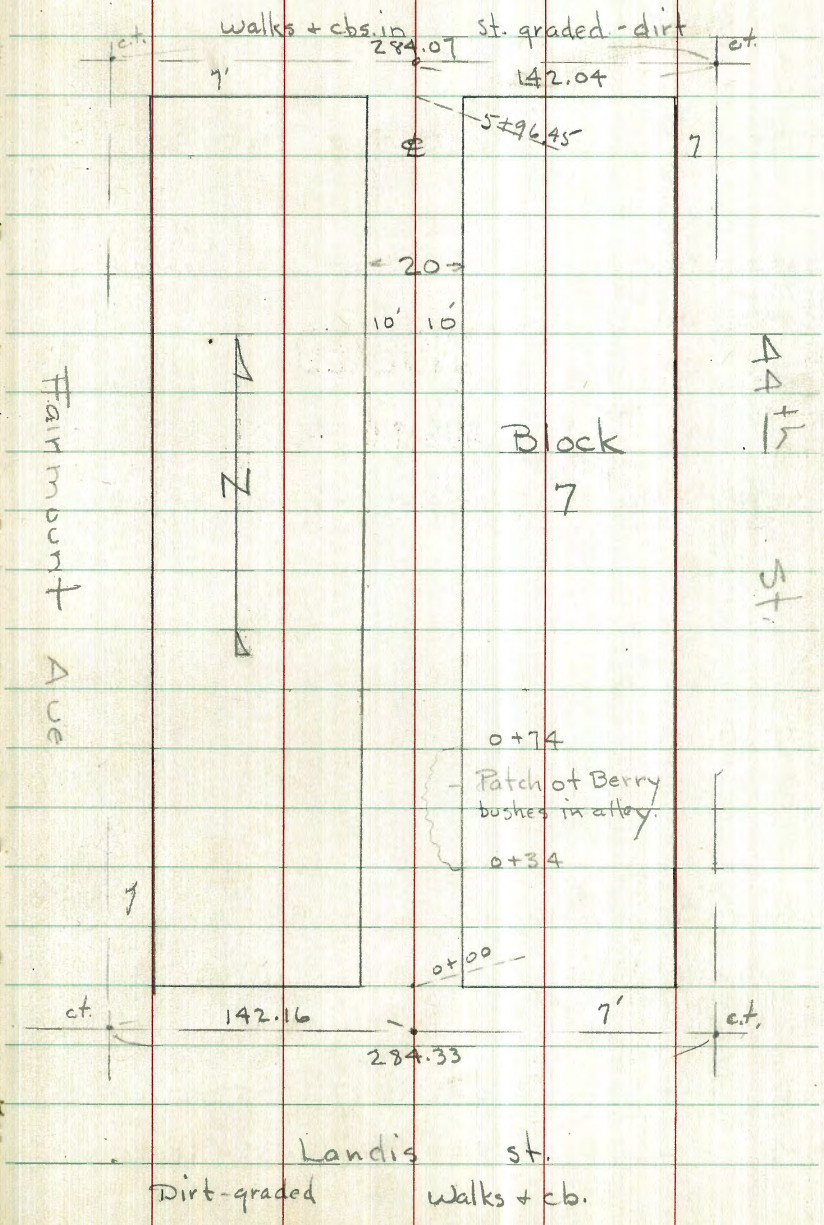 walks + cbs. in St. graded - dirt
c.t. 284.07 c.t.
7' 142.04
5+96.45
℄ 7
20
10' 10'
Fairmount Ave
N
Block
7
44th St.
0+74
Patch of Berry
bushes in alley.
0+34
7
0+00
ct. 142.16 7' c.t.
284.33
Landis St.
Dirt-graded Walks + cb.